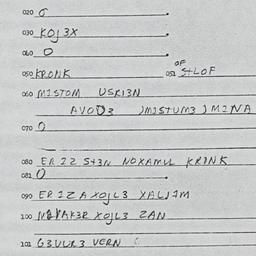 020 O
030 KOJ3X
040 O
OF
050 KRONK 051 S+LOF
060 MISTOM USKI3N
AVOD3 JMISTUM3 J MINA
070 O
080 ER22 S+3N NOXAMUL KRINK
081 O
090 ERIZAXOJL3 XALJIM
100 XOJL3 ZAN
101 G3VUR3 VERN